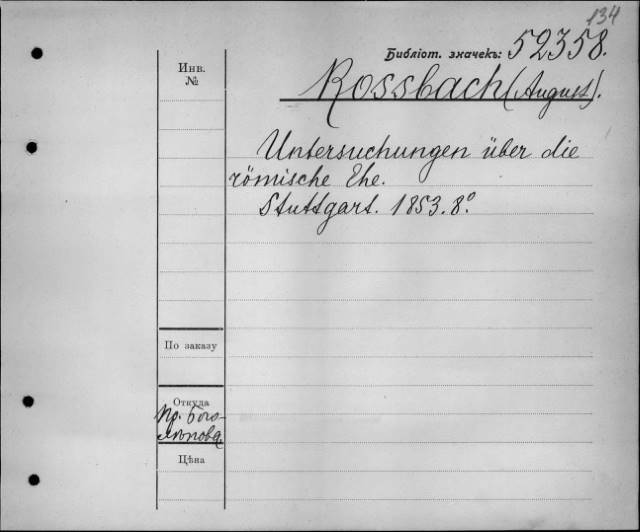 134
Библіот. значекъ: 52358.
Инв.
№
Rossbach (August).
Untersuchungen über die
römische Ehe.
Stuttgart. 1853. 8º
По заказу
Откуда
Пр. Бого-
лѣпова
Цѣна